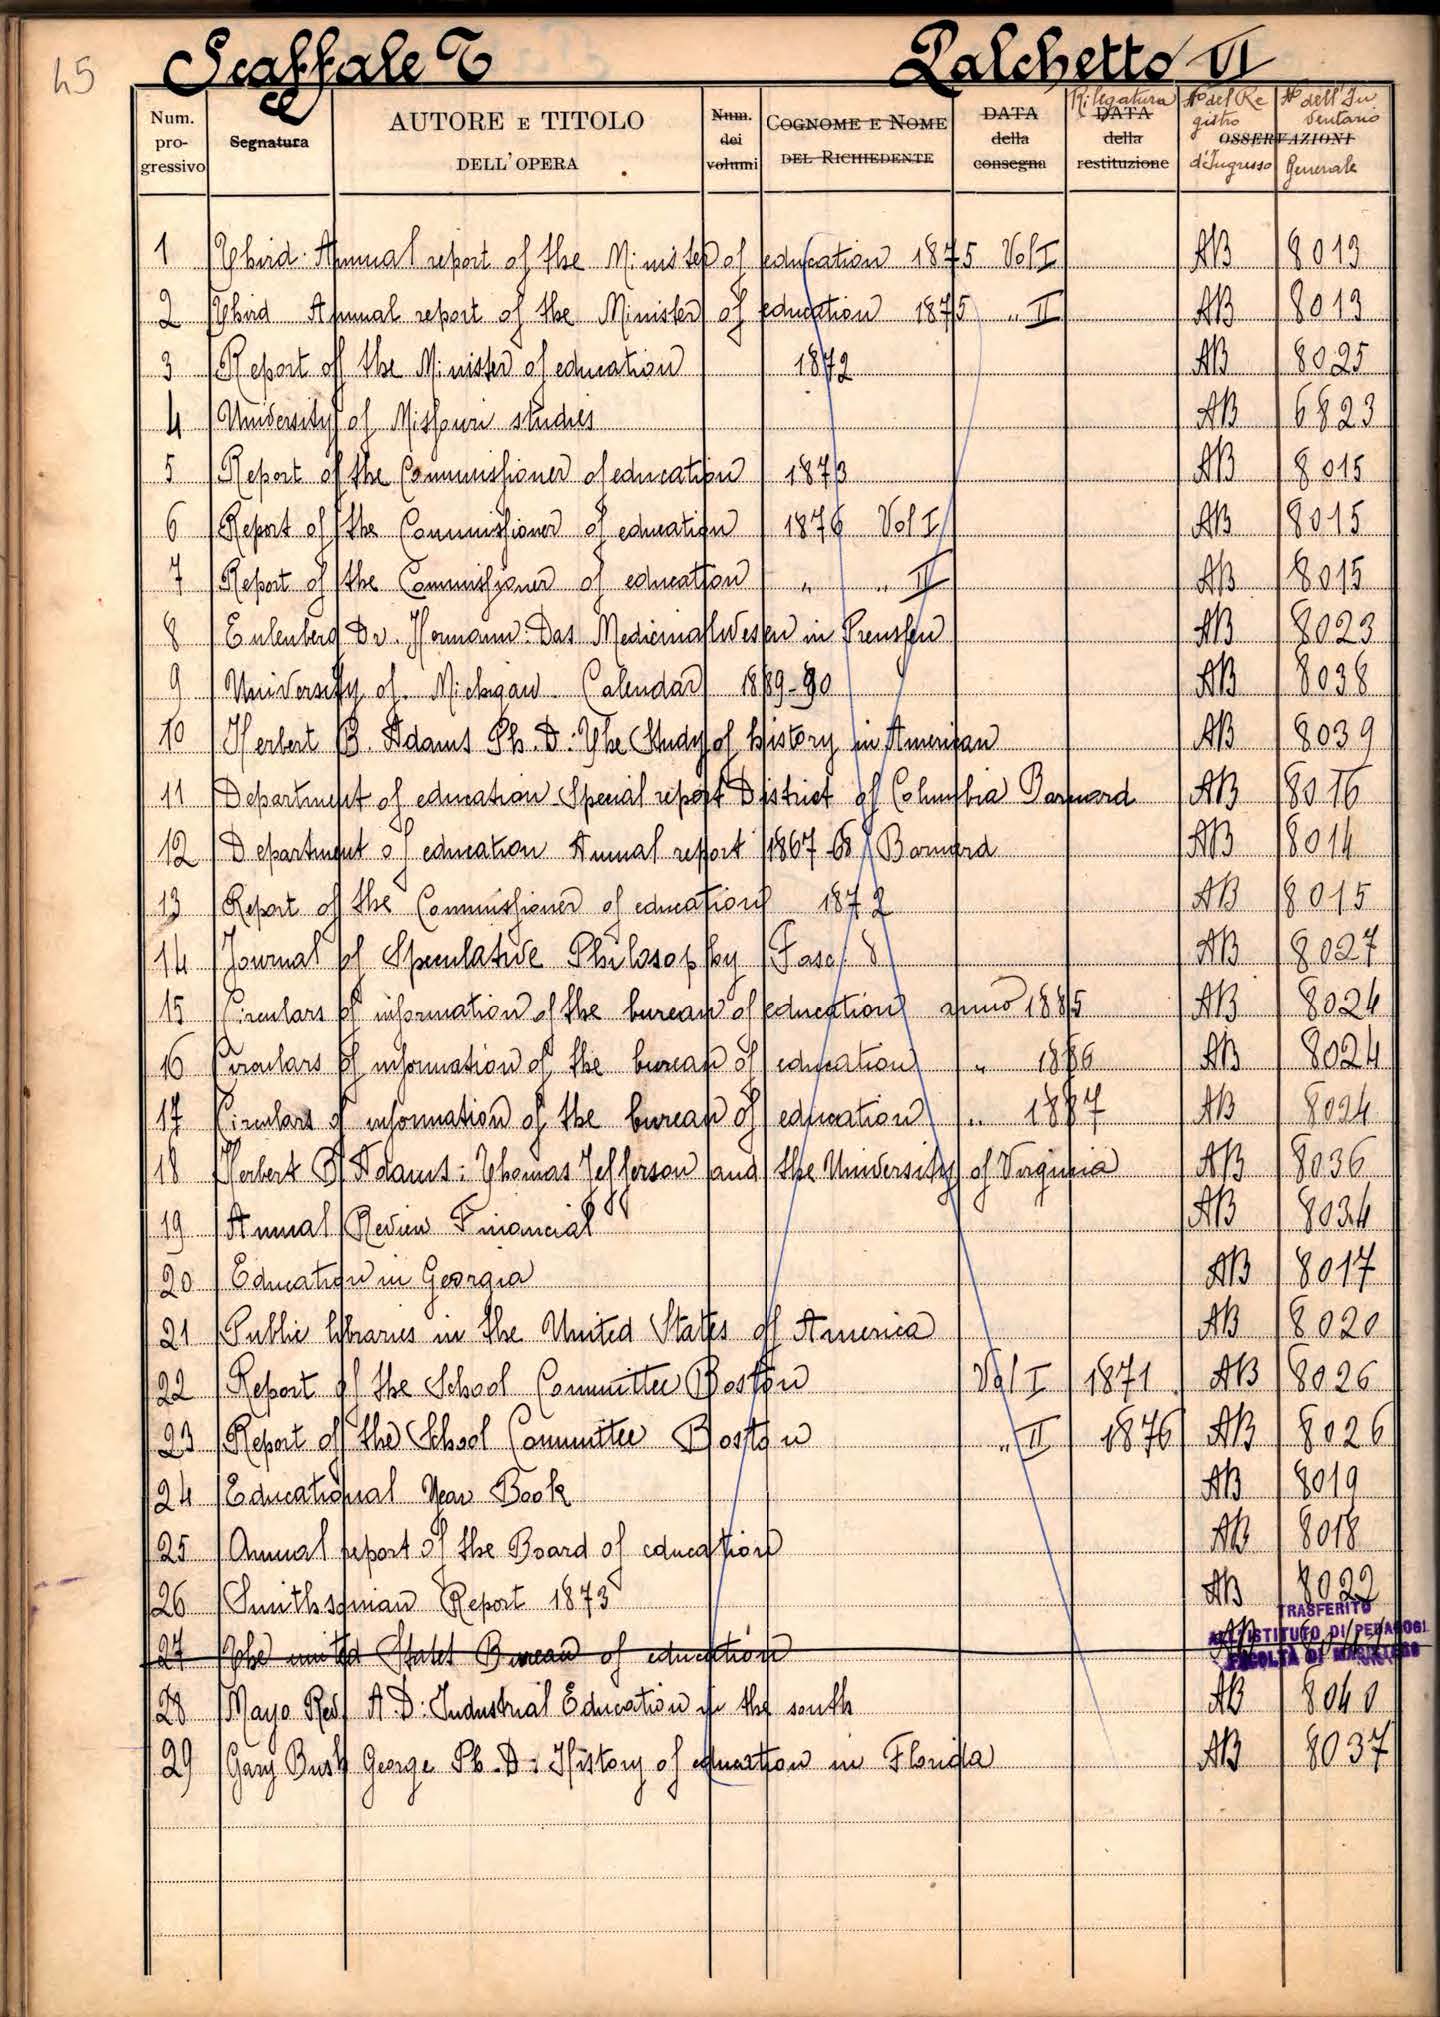 45
Scaffale T Palchetto VI
Num. progressivo Segnatura AUTORE E TITOLO DELL'OPERA Num. dei volumi COGNOME E NOME DEL RICHIEDENTE DATA della consegna Rilegatura DATA della restituzione N° del Registro d'Ingresso OSSERVAZIONI N° dell'Inventario Generale
1 Third Annual report of the Minister of education 1875 Vol I AB 8013
2 Third Annual report of the Minister of education 1875 „ II AB 8013
3 Report of the Minister of education 1872 AB 8025
4 University of Missouri studies AB 6823
5 Report of the Commissioner of education 1873 AB 8015
6 Report of the Commissioner of education 1876 Vol I AB 8015
7 Report of the Commissioner of education „ „ II AB 8015
8 Eulenberg Dr. Hermann: Das Medicinalwesen in Preussen AB 8023
9 University of Michigan Calendar 1889-90 AB 8038
10 Herbert B. Adams Ph. D: The Study of history in American AB 8039
11 Department of education Special report District of Columbia Barnard AB 8016
12 Department of education Annual report 1867-68 Barnard AB 8014
13 Report of the Commissioner of education 1872 AB 8015
14 Journal of Speculative Philosophy Fasc. 8 AB 8027
15 Circulars of information of the bureau of education anno 1885 AB 8024
16 Circulars of information of the bureau of education „ 1886 AB 8024
17 Circulars of information of the bureau of education „ 1887 AB 8024
18 Herbert B Adams: Thomas Jefferson and the University of Virginia AB 8036
19 Annual Review Financial AB 8034
20 Education in Georgia AB 8017
21 Public libraries in the United States of America AB 8020
22 Report of the School Committee Boston Vol I 1871 AB 8026
23 Report of the School Committee Boston „ II 1876 AB 8026
24 Educational Year Book AB 8019
25 Annual report of the Board of education AB 8018
26 Smithsonian Report 1873 AB 8022
TRASFERITO
ALL'ISTITUTO DI PEDAGOGI
27 The united States Bureau of education AB
FACOLTÀ DI MAGISTERO
28 Mayo Rev. A D: Industrial Education in the south AB 8040
29 Gary Bush George Ph. D: History of education in Florida AB 8037